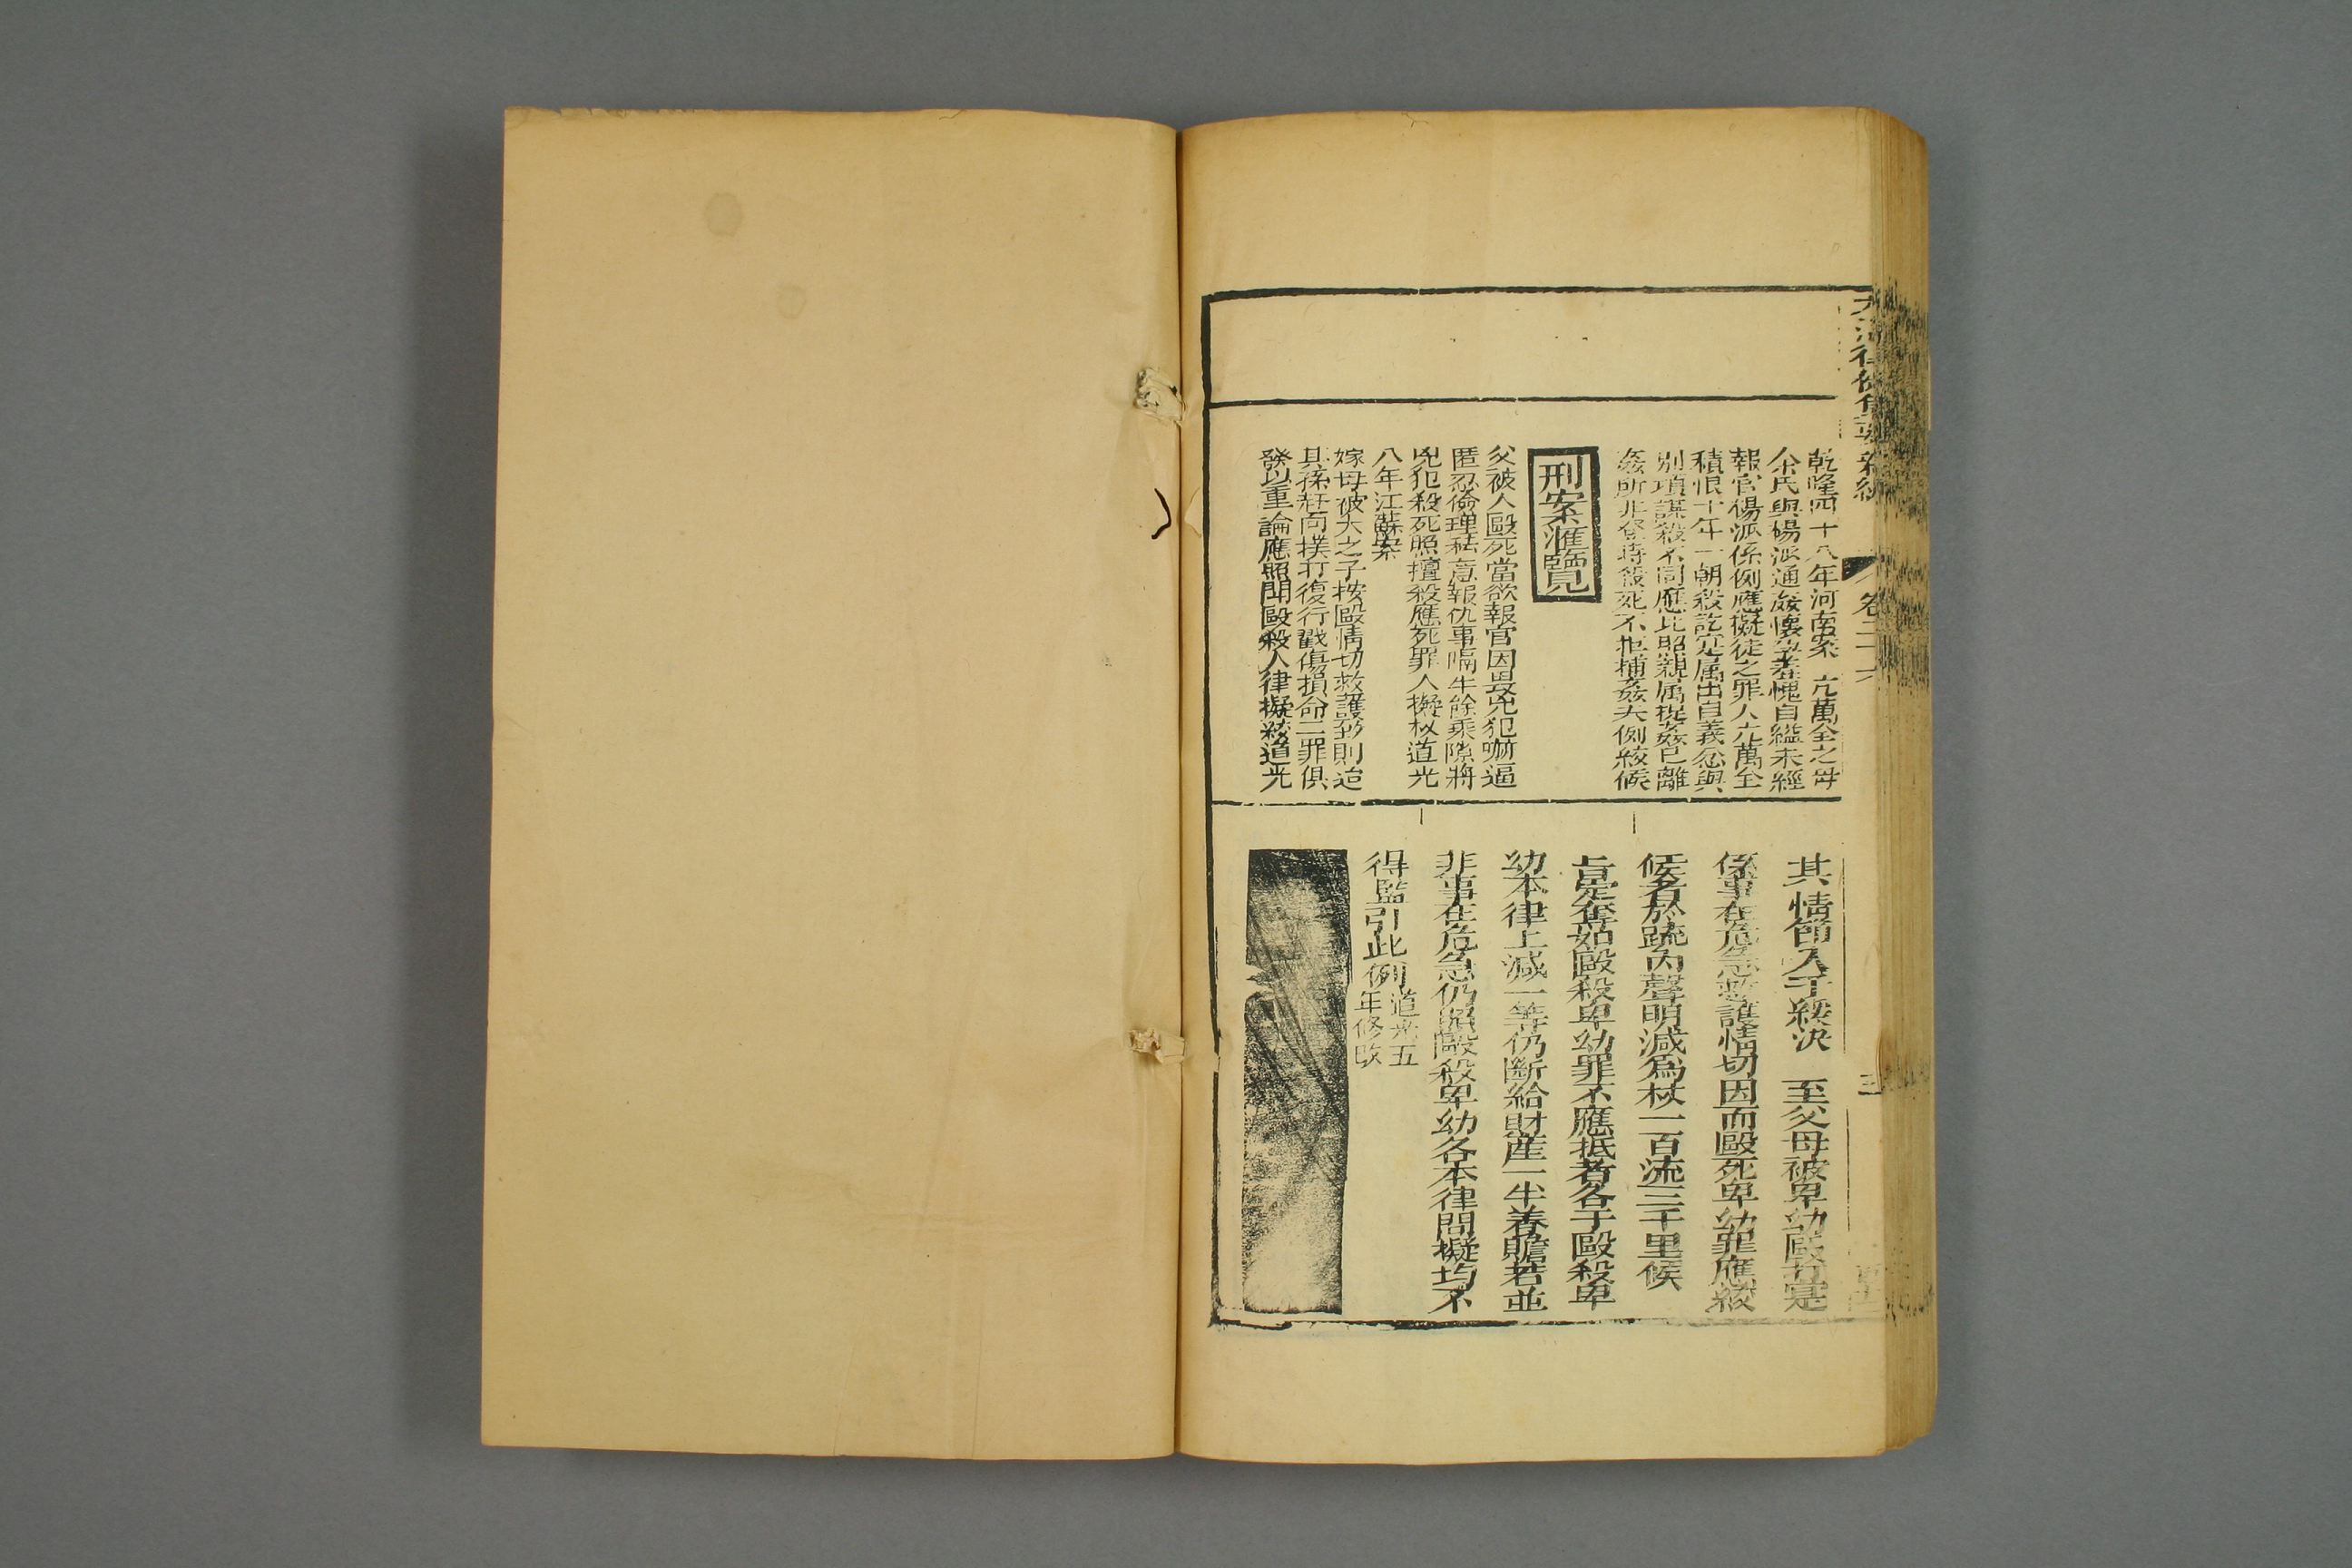 乾隆四十八年河南案 亢萬全之母
余氏與楊派通姦懷孕羞愧自縊未經
報官楊派係例應擬徒之罪人亢萬全
積恨十年一朝殺訖究屬出自義忿與
別項謀殺不同應比照親屬捉姦已離
姦所非登時殺死不拒捕姦夫例絞候
刑案滙覽
父被人毆死當欲報官因畏兇犯嚇逼
匿忍倫理私意報仇事隔半餘乘隙將
兇犯殺死照擅殺應死罪人擬杖道光
八年江蘇案
嫁母被夫之子按毆情切救護彭則迨
其孫赶向撲打復行戳傷損命二罪俱
發以重論應照鬬毆殺人律擬絞道光
其情節入于緩決 至父母被卑幼毆打寔
係事在危急救護情切因而毆死卑幼罪應絞
候者於疏內聲明減為杖一百流三千里候
旨定奪如毆殺卑幼罪不應抵者各于毆殺卑
幼本律上減一等仍斷給財產一半養贍若並
非事在危急仍照毆殺卑幼各本律問擬均不
得濫引此例道光五
年修改
卷二十六